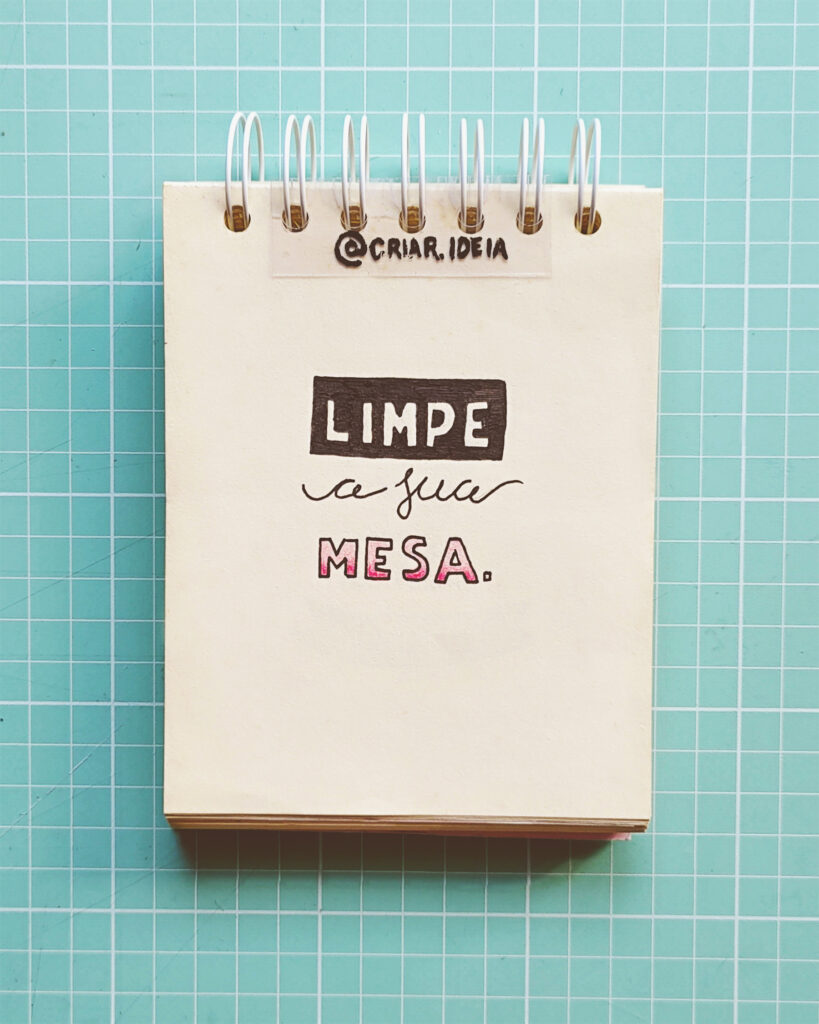 @CRIAR.IDEIA
LIMPE
a sua
MESA.